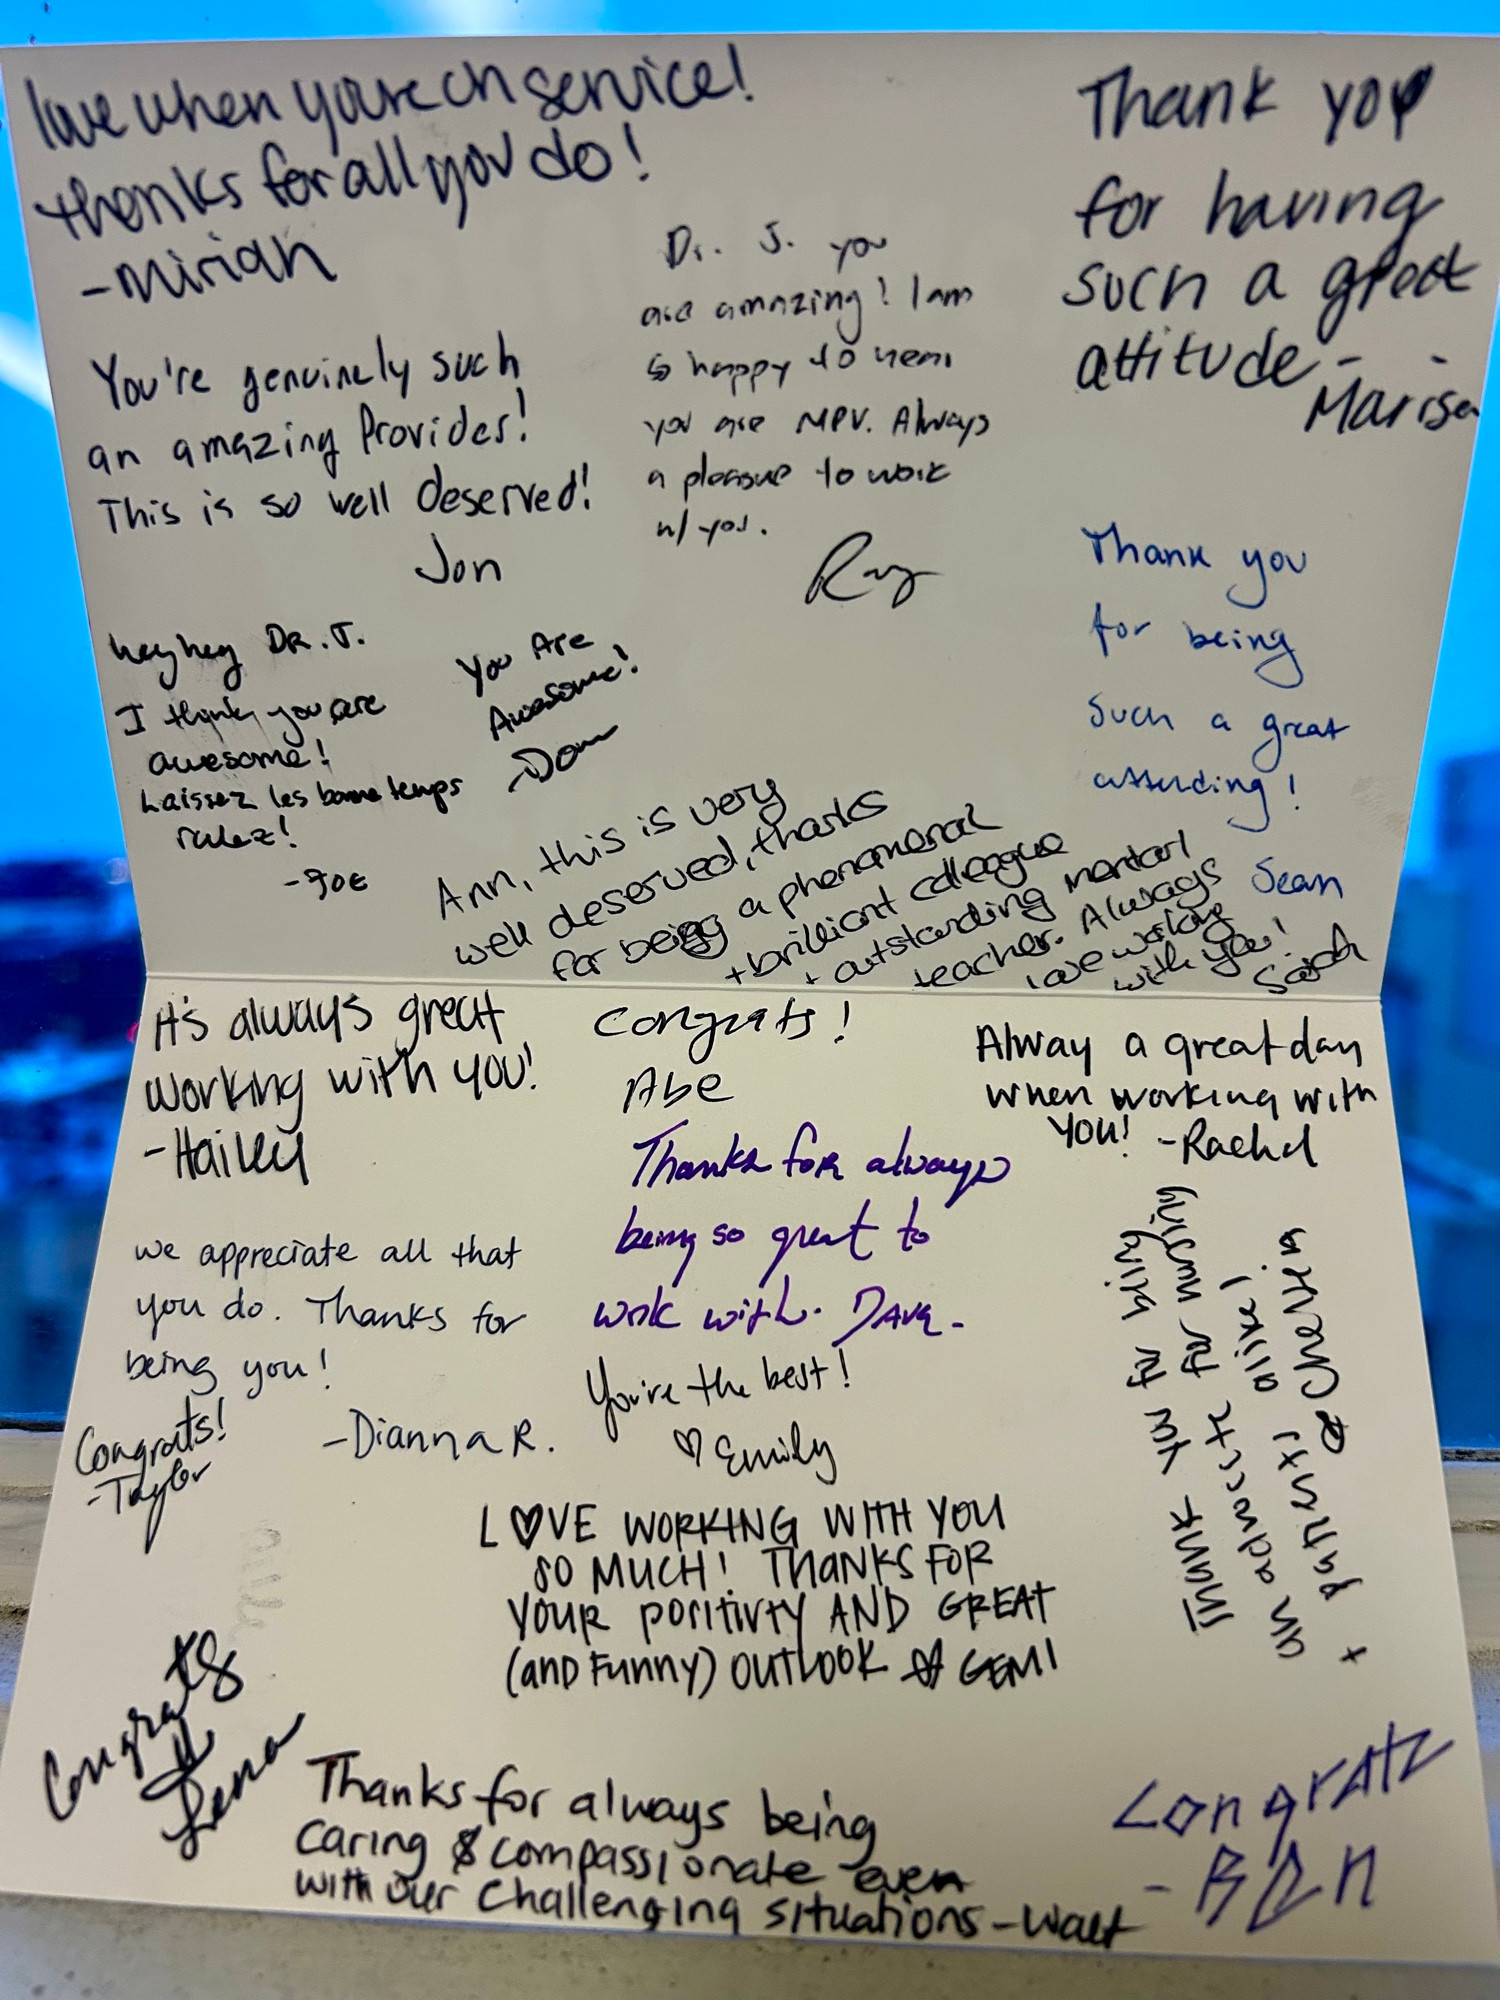 love when you're on service!
thanks for all you do!
-Miriah
Thank you
for having
such a great
attitude -
Marisa
Dr. J. you
are amazing! I am
so happy to hear
you are MPV. Always
a pleasure to work
w/ you.
Ray
You're genuinely such
an amazing Provider!
This is so well deserved!
Jon
Thank you
for being
Such a great
attending!
Sean
hey hey DR. J.
I think you are
awesome!
Laissez les bonne temps
rulez!
-JOE
You Are
Awesome!
-Dom
Ann, this is very
well deserved, thanks
for being a phenomenal
+ brilliant colleague
+ outstanding mentor/
teacher. Always
love working
with you!
Sarah
It's always great
working with you!
-Hailey
Congrats!
Abe
Alway a great day
when working with
YOU! -Rachel
Thanks for always
being so great to
work with. Dava.
we appreciate all that
you do. Thanks for
being you!
-Dianna R.
Congrats!
-Taylor
You're the best!
♡ Emily
Thank you for being
an advocate for nursing
+ patients alike!
Chelsea
L♡VE WORKING WITH YOU
SO MUCH! THANKS FOR
YOUR POSITIVITY AND GREAT
(and FUNNY) OUTLOOK GEMI
Congrats
Lena
Thanks for always being
caring & compassionate even
with our challenging situations - Walt
Congratz
- BEN